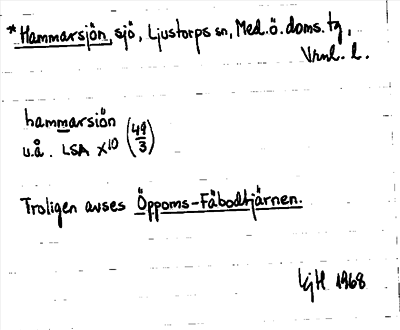 *Hammarsjön, sjö, Ljustorps sn, Med. ö. doms. tg,
Vrnl. l.
hammarsiön
u.å. LSA X10 (49/3)
Troligen avses Öppoms-Fäbodtjärnen.
1968